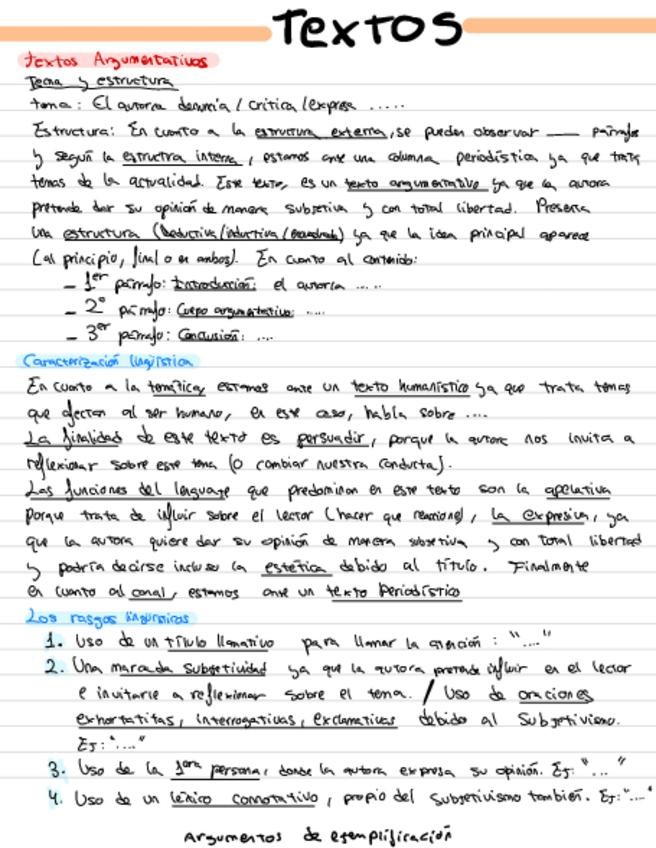 Textos
Textos Argumentativos
Tema y estructura
tema: El autor/a denuncia / critica / expresa .....
Estructura: En cuanto a la estructura externa, se pueden observar ___ párrafos
y según la estructra interna, estamos ante una columna periodística ya que trata
temas de la actualidad. Este texto, es un texto argumentativo ya que la autora
pretende dar su opinión de manera subjetiva y con total libertad. Presenta
una estructura (Deductiva/inductiva/encuadrada) ya que la idea principal aparece
(al principio, final o en ambos). En cuanto al contenido:
- 1er párrafo: Introducción: el autor/a .....
- 2º párrafo: Cuerpo argumentativo: .....
- 3er párrafo: Conclusión: ....
Caracterización lingüística
En cuanto a la temática, estamos ante un texto humanístico ya que trata temas
que afectan al ser humano, en este caso, habla sobre ....
La finalidad de este texto es persuadir, porque la autora nos invita a
reflexionar sobre este tema (o cambiar nuestra conducta).
Las funciones del lenguaje que predominan en este texto son la apelativa
Porque trata de influir sobre el lector (hacer que reaccione), la expresiva, ya
que la autora quiere dar su opinión de manera subjetiva y con total libertad
y podría decirse incluso la estética debido al título. Finalmente
en cuanto al canal, estamos ante un texto Periodístico
Los rasgos lingüísticos
1. Uso de un título llamativo para llamar la atención: "...."
2. Una marcada subjetividad ya que la autora pretende influir en el lector
e invitarle a reflexionar sobre el tema. / Uso de oraciones
exhortatitas, interrogativas, exclamativas debido al Subjetivismo.
Ej: "...."
3. Uso de la 1era persona, donde la autora expresa su opinión. Ej: "..."
4. Uso de un léxico connotativo, propio del subjetivismo también. Ej: "...."
Argumentos de ejemplificación